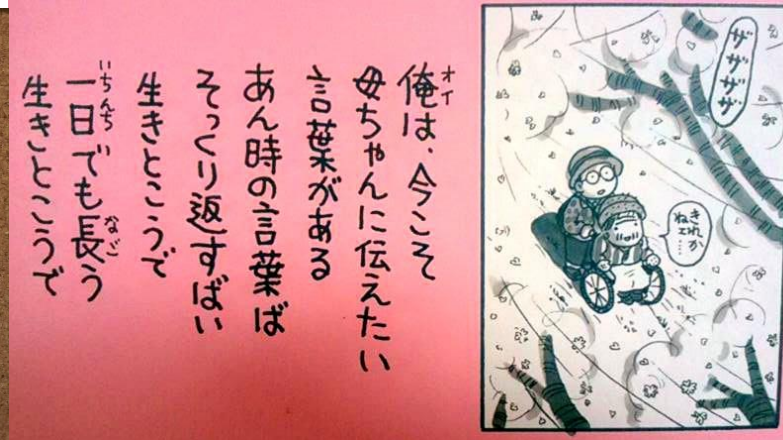 ザザザザ
きれか
ねェ…
俺は、今こそ
オイ
母ちゃんに伝えたい
言葉がある
あん時の言葉ば
そっくり返すばい
生きとこうで
一日でも長う
いちんち
なご
生きとこうで